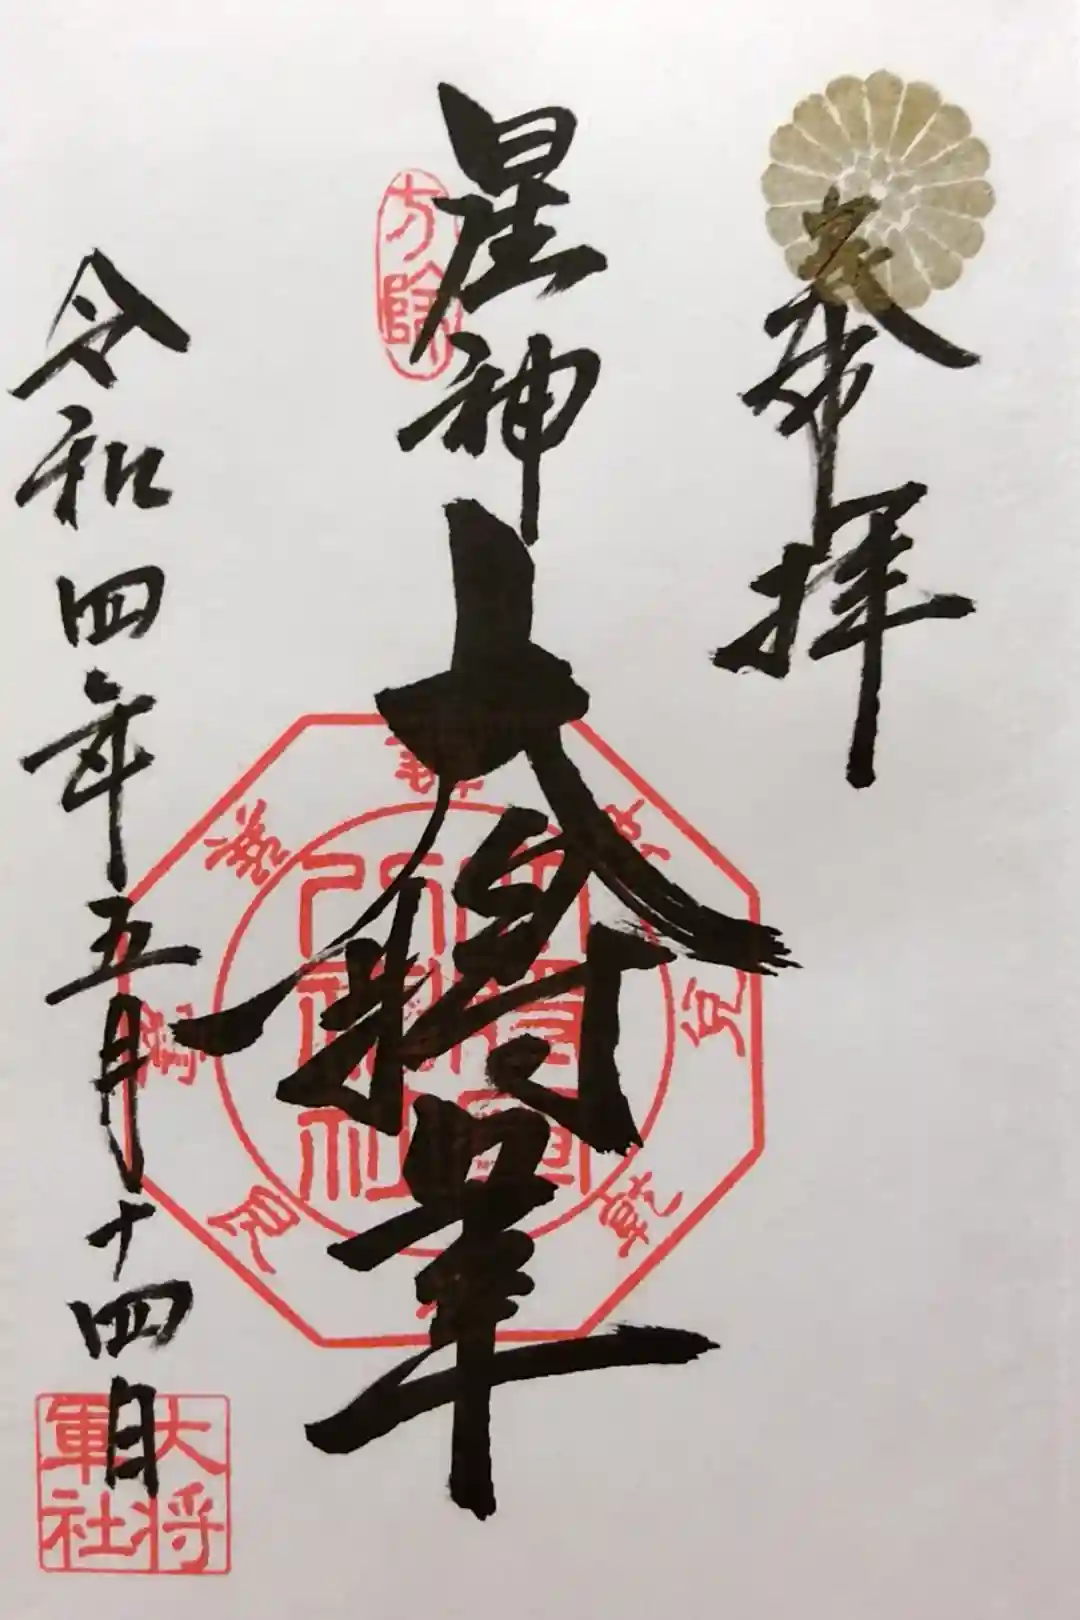 奉拝
星神
大将軍
方除
兌
乾
艮
令和四年五月十四日
大将
軍社